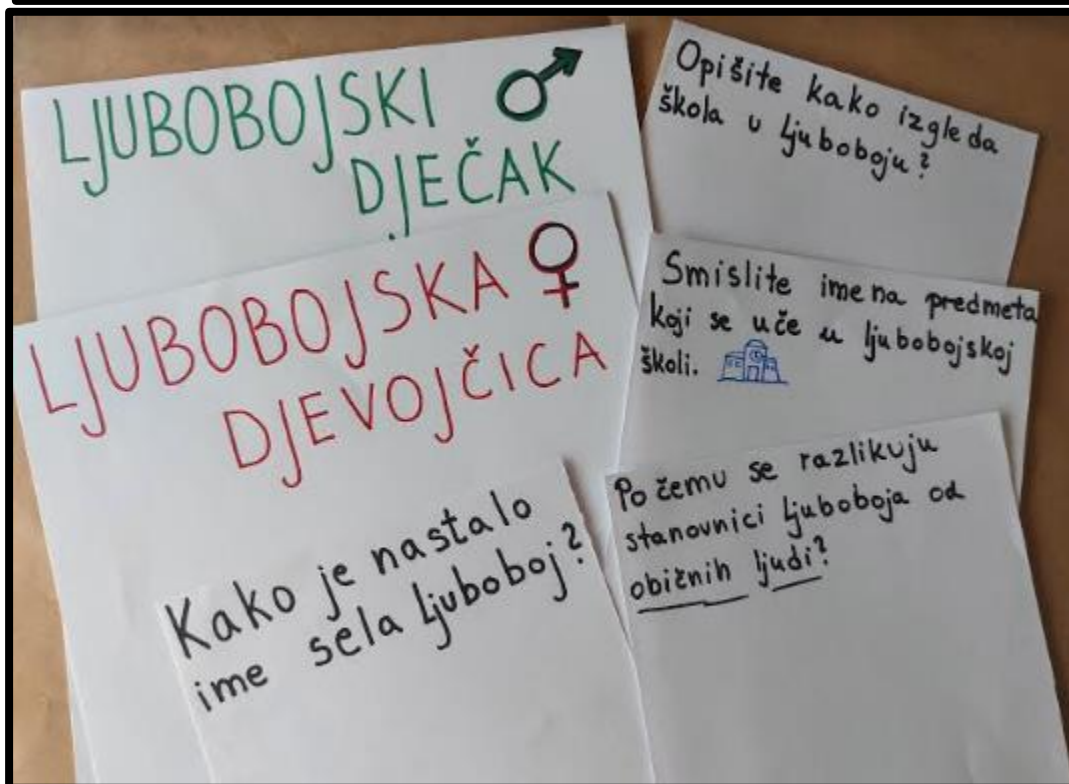 LJUBOBOJSKI
DJEČAK
LJUBOBOJSKA
DJEVOJČICA
Kako je nastalo
ime sela Ljuboboj?
Opišite kako izgleda
škola u Ljuboboju?
Smislite imena predmeta
koji se uče u ljubobojskoj
školi.
Po čemu se razlikuju
stanovnici Ljuboboja od
običnih ljudi?